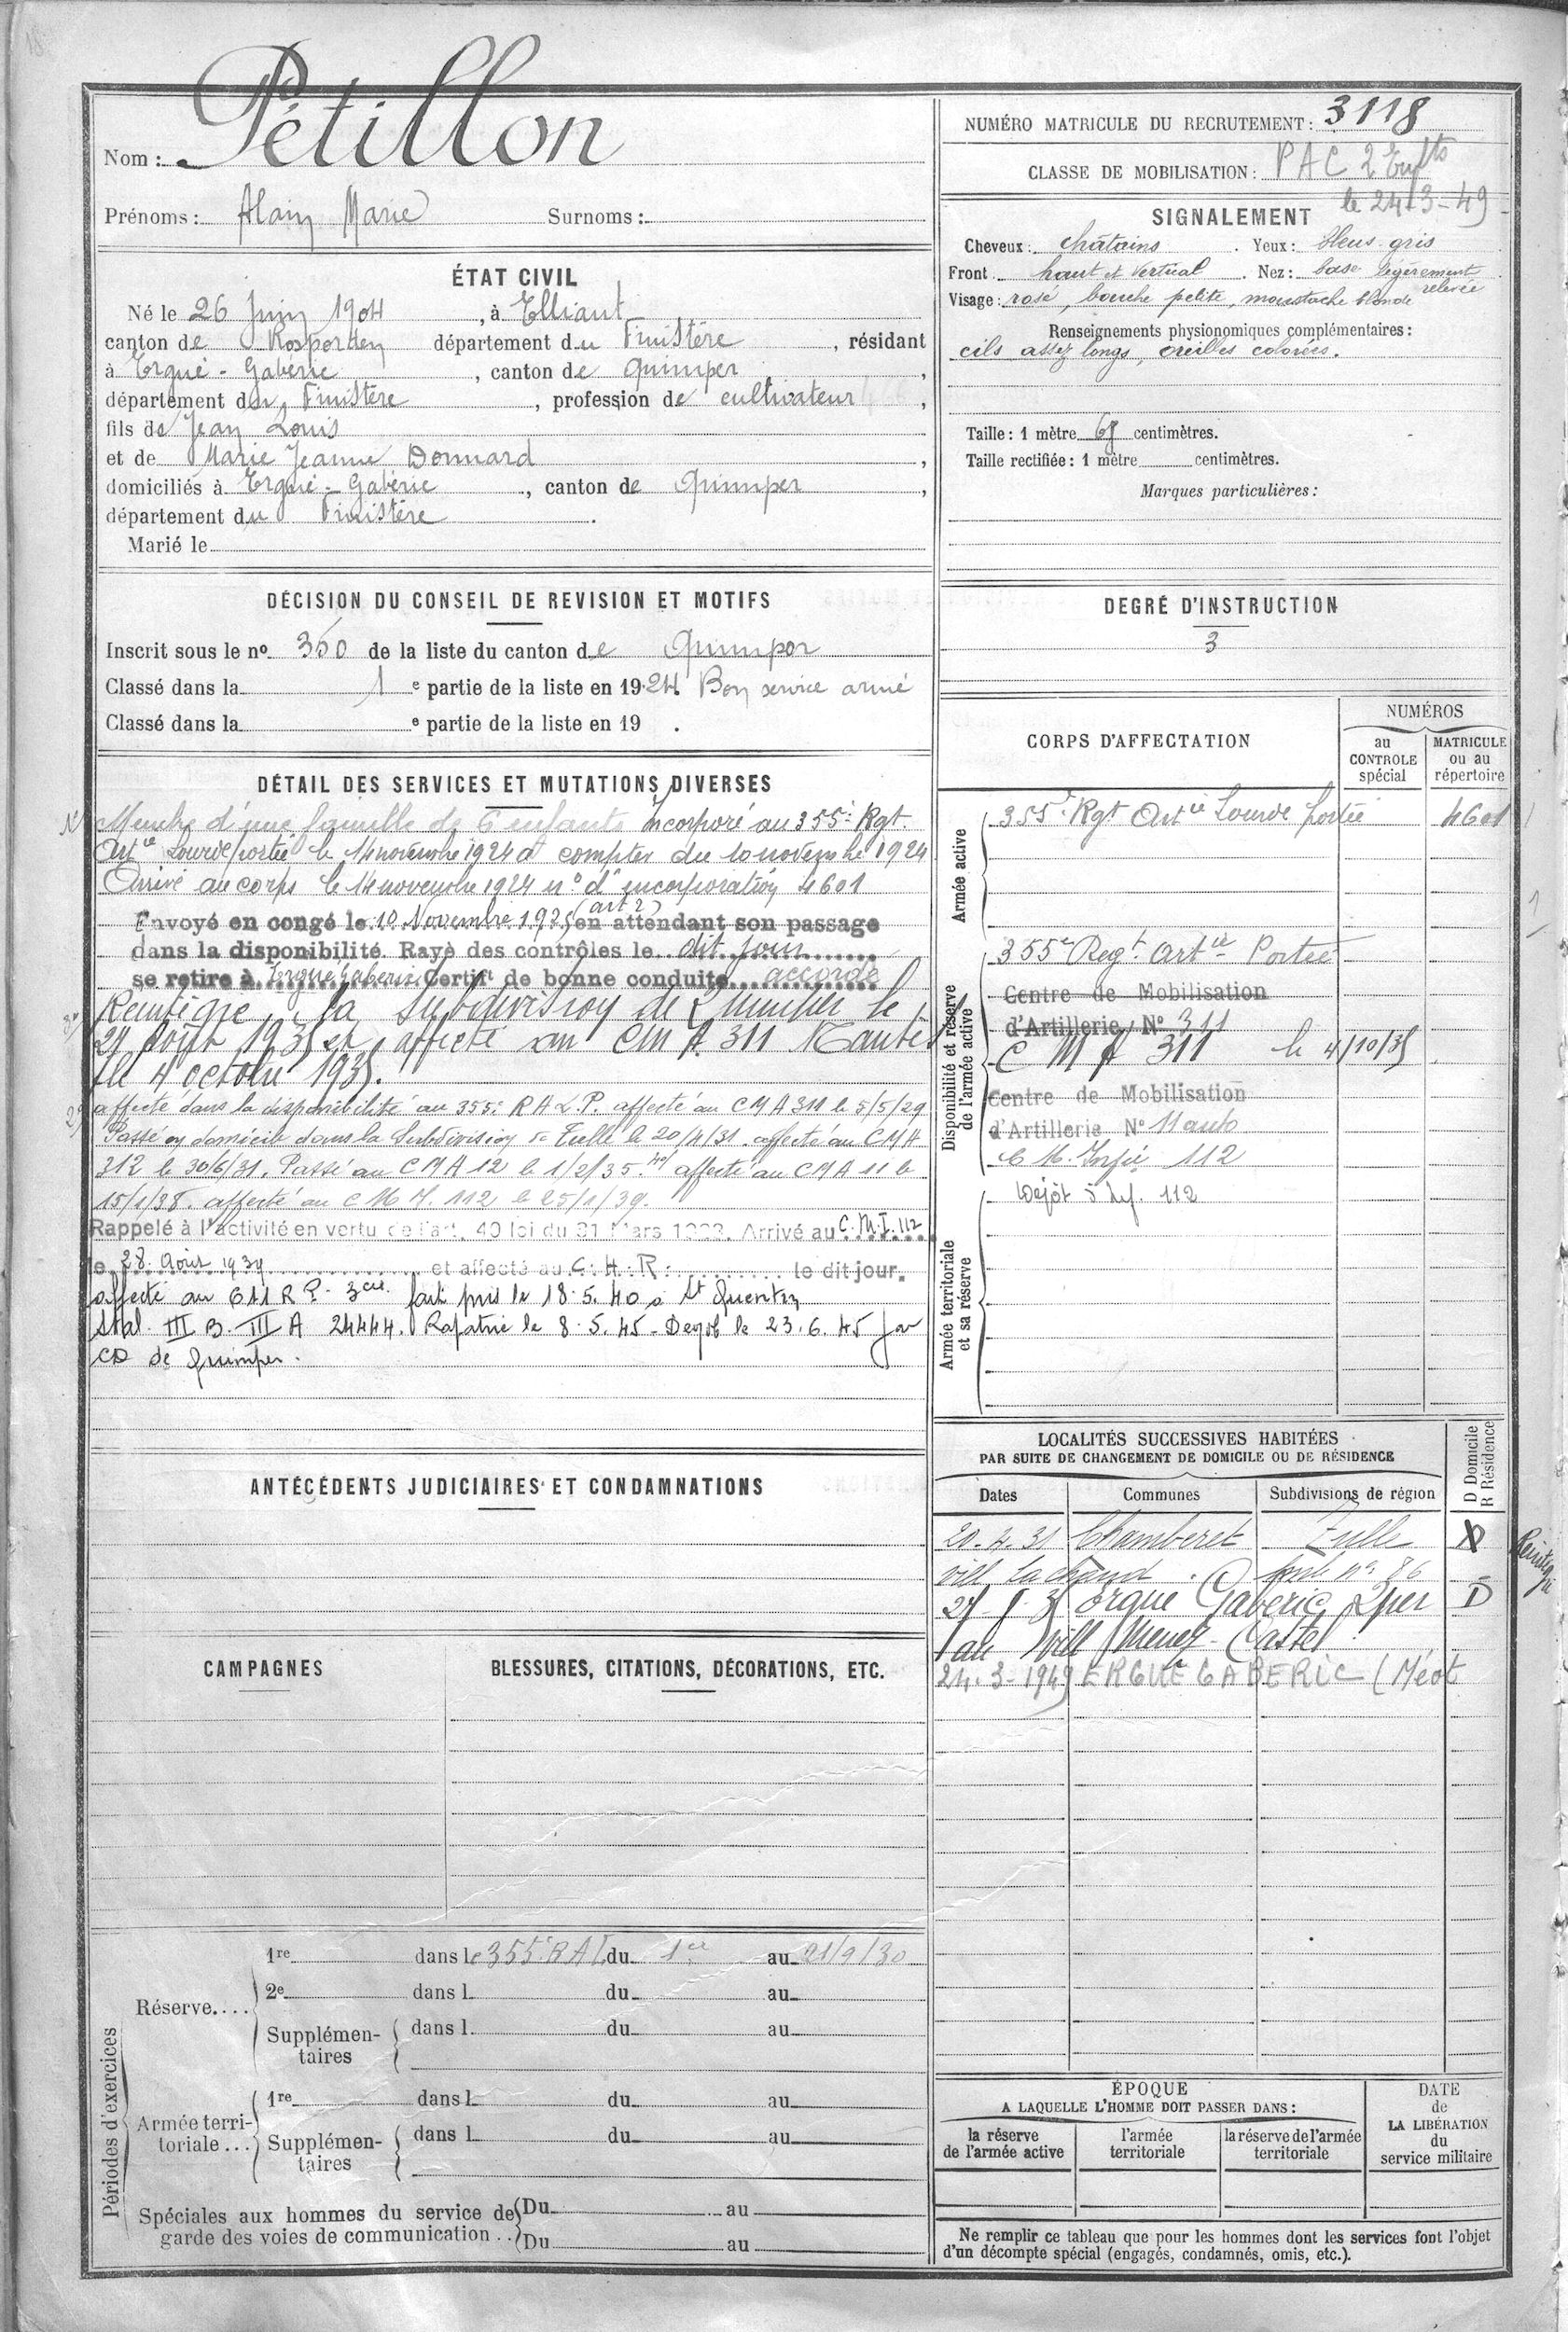 Pétillon
Nom :
Prénoms : Alain Marie Surnoms :
ÉTAT CIVIL
Né le 26 Juin 1904, à Elliant
canton de Rosporden département du Finistère, résidant
à Ergué-Gabéric, canton de Quimper,
département du Finistère, profession de cultivateur,
fils de Jean Louis
et de Marie Jeanne Donnard,
domiciliés à Ergué-Gabéric, canton de Quimper,
département du Finistère.
Marié le
DÉCISION DU CONSEIL DE REVISION ET MOTIFS
Inscrit sous le nº 350 de la liste du canton de Quimper
Classé dans la 1 e partie de la liste en 1924 Bon service armé
Classé dans la e partie de la liste en 19 .
DÉTAIL DES SERVICES ET MUTATIONS DIVERSES
Membre d'une famille de 6 enfants Incorporé au 355e Rgt.
Artie Lourde portée le 14 novembre 1924 à compter du 10 novembre 1924
Arrivé au corps le 14 novembre 1924 nº d'incorporation 4601
(art 2)
Envoyé en congé le 10 Novembre 1925 en attendant son passage
dans la disponibilité. Rayé des contrôles le dit jour
se retire à Ergué Gabéric Certift de bonne conduite accordé
Réintègre la subdivision de Quimper le
27 Août 1935 et affecté au CMA 311 Nantes
le 4 octobre 1935.
affecté dans la disponibilité au 355e R A L P. affecté au CMA 311 le 5/5/29
Passé en domicile dans la Subdivision de Tulle le 20/4/31. affecté au CMA
312 le 30/6/31. Passé au CMA 12 le 1/2/35. affecté au CMA 11 le
15/1/38. affecté au C M I. 112 le 25/1/39.
Rappelé à l'activité en vertu de l'art. 40 loi du 31 Mars 1928. Arrivé au C.M.I. 112
le 28 Août 1939 et affecté au C.H.R. le dit jour.
affecté au 611 R P. 3 cie. fait pris le 18.5.40 à St Quentin
Stal. III B. III A 24444. Rapatrié le 8.5.45 - Démob le 23.6.45 par
CD de Quimper.
ANTÉCÉDENTS JUDICIAIRES ET CONDAMNATIONS
CAMPAGNES
BLESSURES, CITATIONS, DÉCORATIONS, ETC.
Périodes d'exercices
Réserve....
1re dans le 355e RAL du 1er au 21/9/30
2e dans l du au
Supplémentaires dans l du au
Armée territoriale...
1re dans l du au
Supplémentaires dans l du au
Spéciales aux hommes du service de Du au
garde des voies de communication .. Du au
NUMÉRO MATRICULE DU RECRUTEMENT : 3118
CLASSE DE MOBILISATION : PAC 2 Enfts
le 24-3-49
SIGNALEMENT
Cheveux : châtains. Yeux : bleus gris
Front : haut et vertical. Nez : base légèrement
relevée
Visage : rosé, bouche petite, moustache blonde
Renseignements physionomiques complémentaires :
cils assez longs, oreilles colorées.
Taille : 1 mètre 68 centimètres.
Taille rectifiée : 1 mètre centimètres.
Marques particulières :
DEGRÉ D'INSTRUCTION
3
CORPS D'AFFECTATION
NUMÉROS
au CONTROLE spécial
MATRICULE ou au répertoire
Armée active
355e Rgt Artie Lourde portée 4601
Disponibilité et réserve de l'armée active
355e Regt. Artie Portée
Centre de Mobilisation
d'Artillerie Nº 311
C M A 311 le 4/10/35
Centre de Mobilisation
d'Artillerie Nº 11
C M. Infie 112
Armée territoriale et sa réserve
Dépôt d'Inf. 112
LOCALITÉS SUCCESSIVES HABITÉES
PAR SUITE DE CHANGEMENT DE DOMICILE OU DE RÉSIDENCE
D Domicile
R Résidence
Dates Communes Subdivisions de région
20.4.31 Chamberet Tulle D
vill. Lachaud nº 86
27 8 35 Ergué Gabéric Qper D
au vill Menez-Castel
24.3-1949 ERGUÉ GABERIC (Méot
ÉPOQUE
A LAQUELLE L'HOMME DOIT PASSER DANS :
la réserve de l'armée active
l'armée territoriale
la réserve de l'armée territoriale
DATE
de
LA LIBÉRATION
du
service militaire
Ne remplir ce tableau que pour les hommes dont les services font l'objet
d'un décompte spécial (engagés, condamnés, omis, etc.).